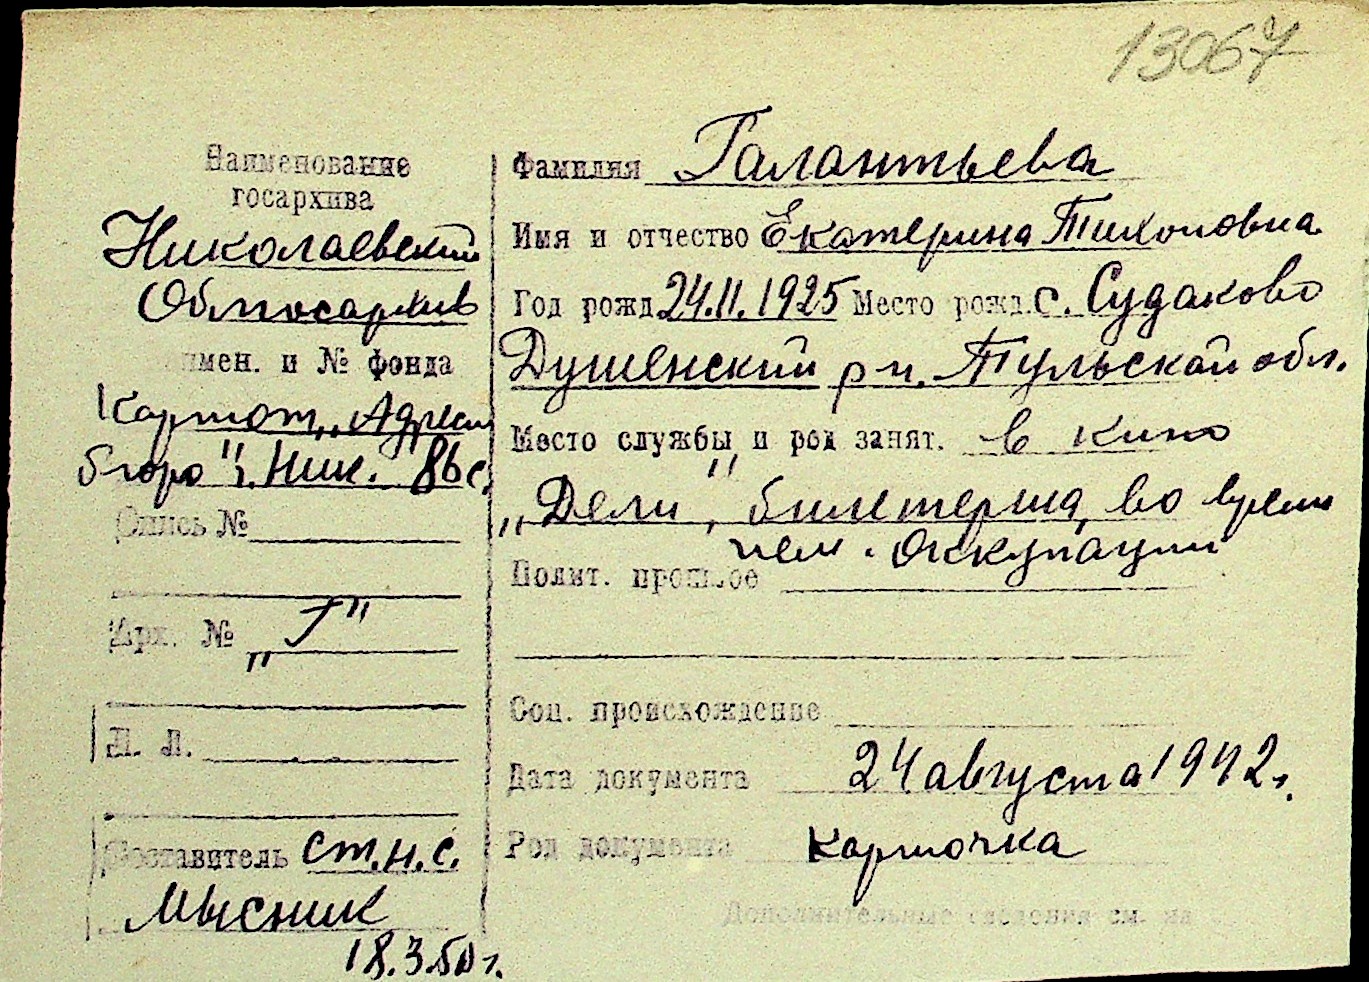 13067
Наименование
госархива
Николаевский
Облгосархив
имен. и № фонда
Картот. „Адресн
бюро" г. Ник. 86 с.
Опись №
Арх. № „Г"
Л. Л.
Составитель ст.н.с.
Мысник
18.3.50 г.
Фамилия Галантьева
Имя и отчество Екатерина Тихоновна
Год рожд. 24.11.1925 Место рожд. с. Судаково
Душенский р-н. Тульской обл.
Место службы и род занят. в кино
„Дели", билетерша, во время
нем. оккупации
Полит. прошлое
Соц. происхождение
Дата документа 24 августа 1942 г.
Род документа карточка
Дополнительные сведения см. на